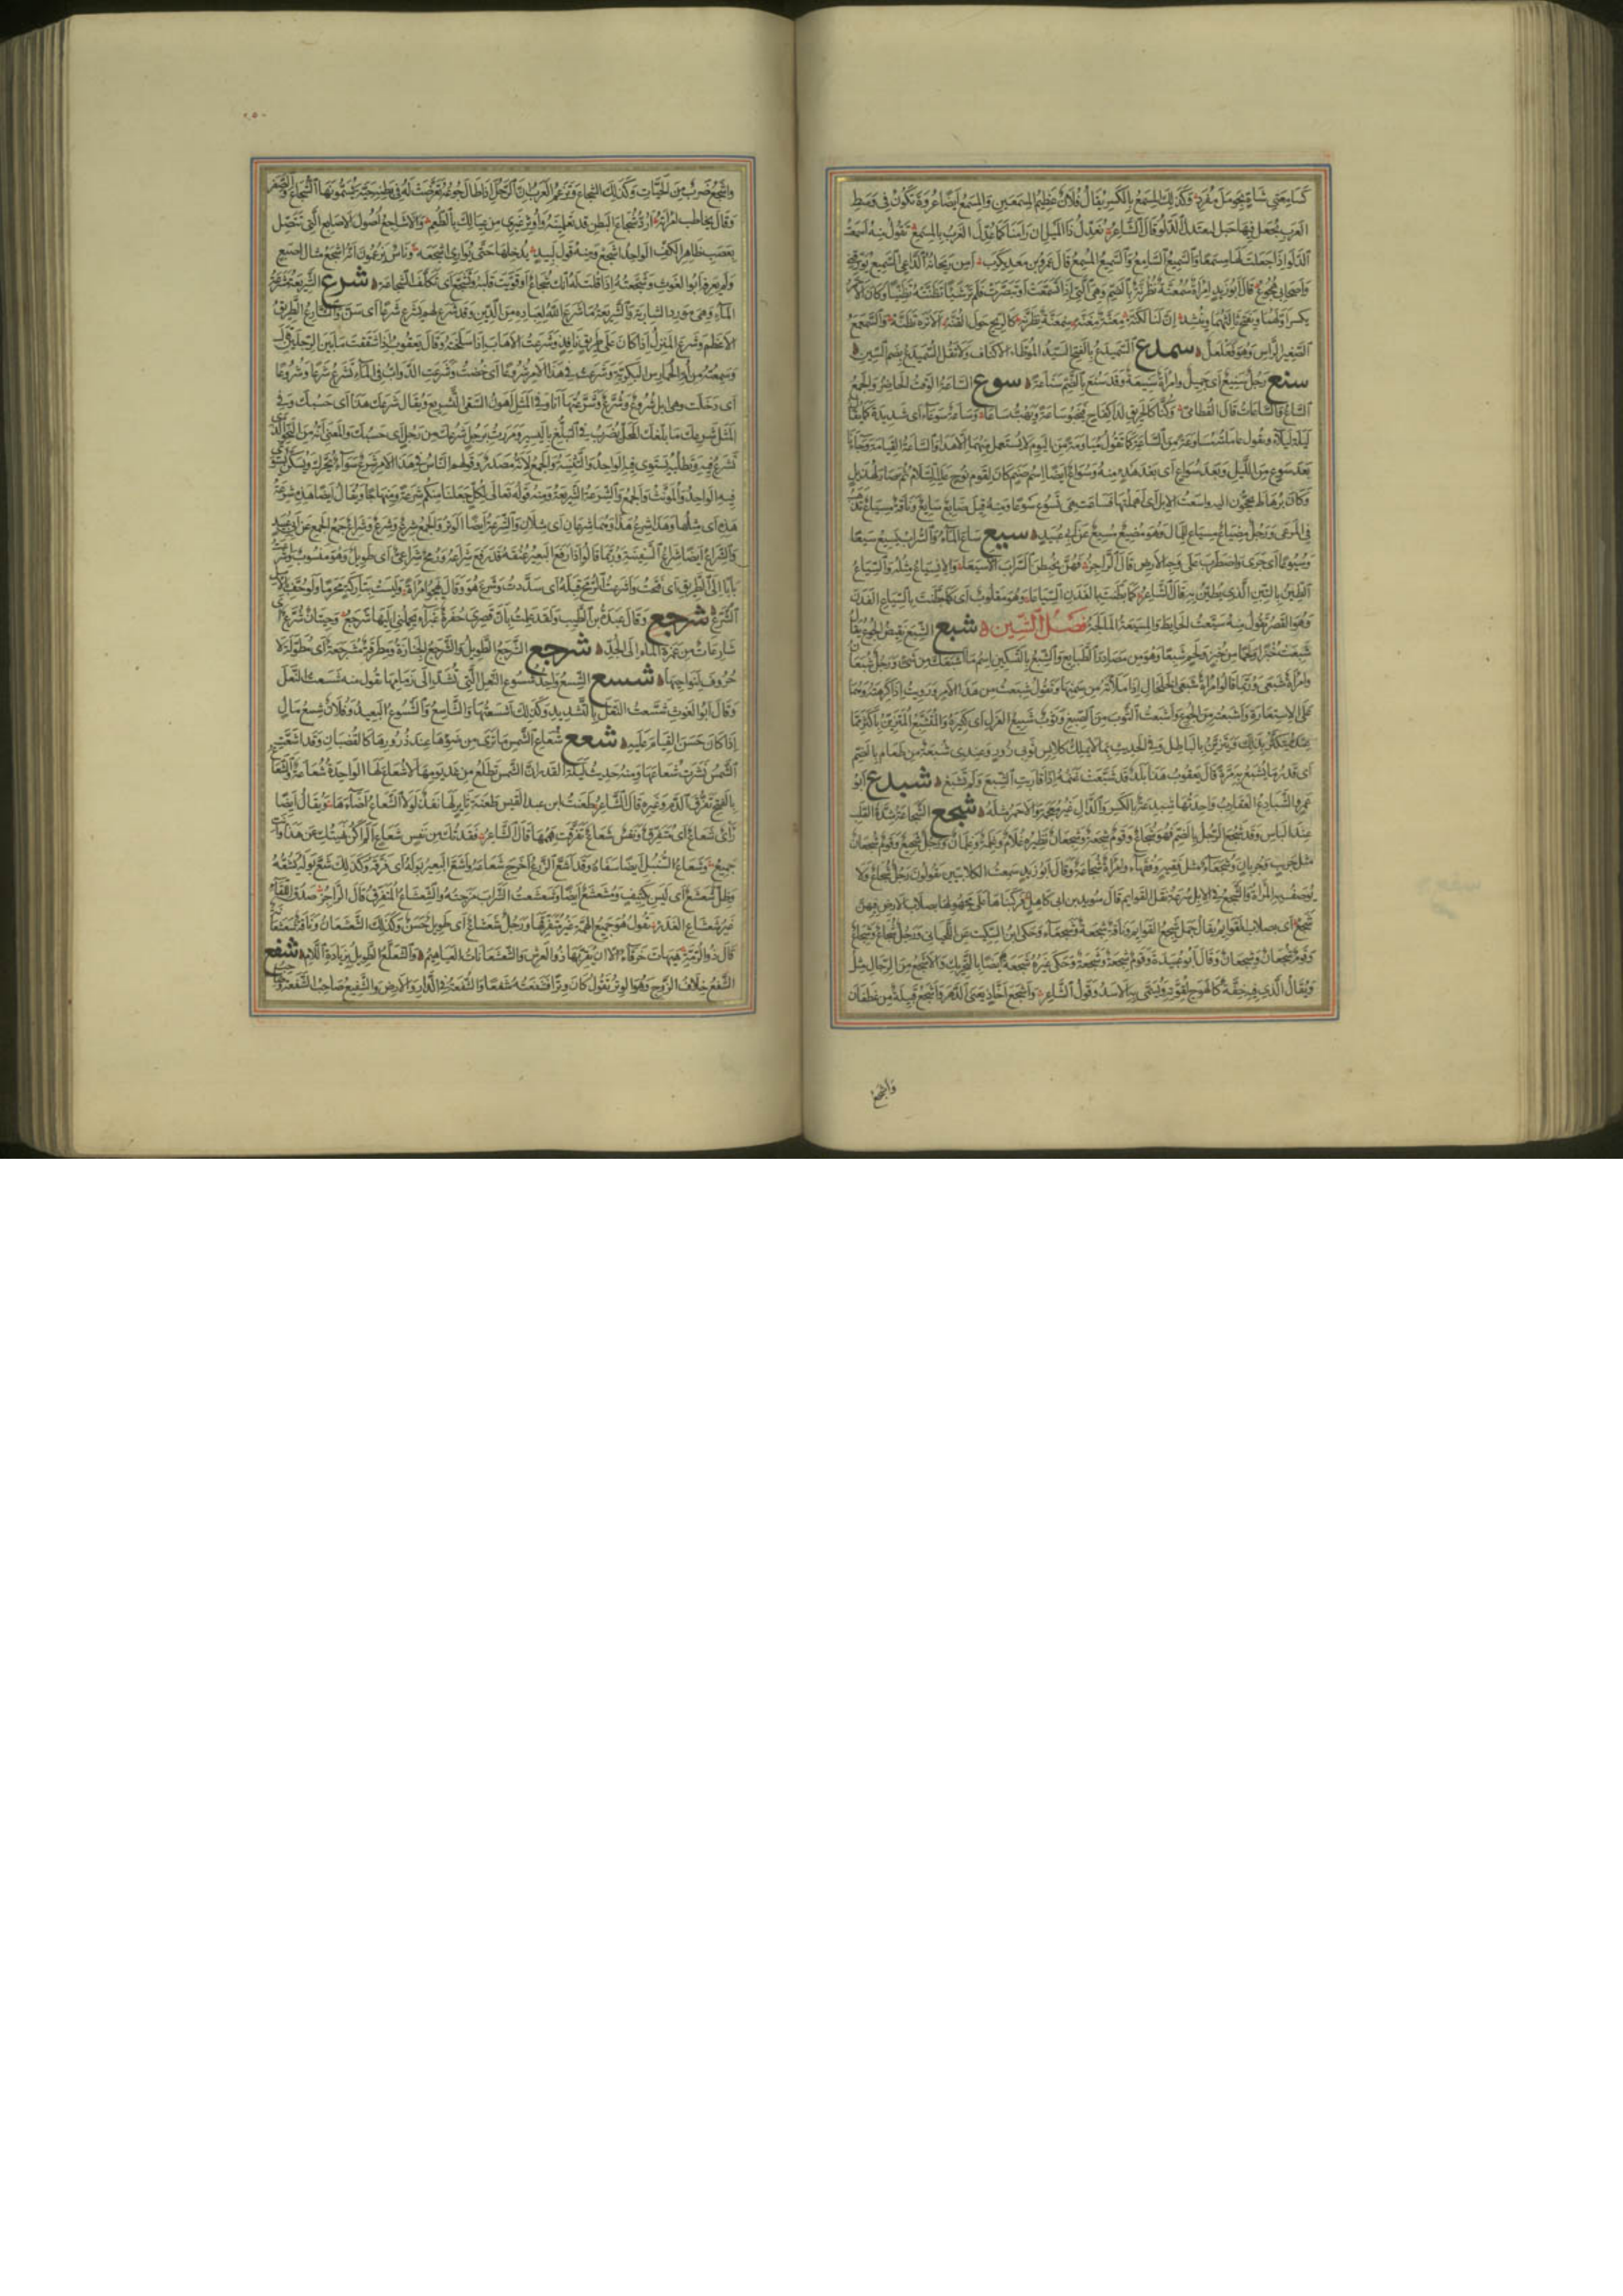 كساء يعنى شاة بنجو مل مفرد وكذلك المسمع بالكسر يقال فلان عظيم المسمعين والمسمع ايضا عروة تكون فى وسط
الغرب يجعل فيها حبل لتعتدل الدلو قال الشاعر نعدل ذا الميل ان رامنا كما عدل الغرب بالمسمع تقول منه اسمعت
الدلو اذا جعلت لها مسمعا والسميع السامع والسميع المسمع قال عمرو بن معدى كرب امن ريحانة الداعى السميع يؤرقنى
واصحابى هجوع قال ابو زيد امراة سمعنة نظرنة بالضم وهى التى اذا تسمعت او تبصرت فلم تر شيئا تظنته تظنيا وكان الاحمر
يكسر اولهما ويفتح ثالثهما وينشد ان لنا لكنه معنة مفنه سمعنة نظرنه كالريح حول القنه الا تره تظنه والسمعمع
الصغير الراس وهو فعلعل سمدع السميدع بالفتح السيد الموطا الاكناف ولا تقل السميدع بضم السين
سنع رجل سنيع اى جميل وامراة سنيعة وقد سنع بالضم سناعة سوع الساعة الوقت الحاضر والجمع
الساع والساعات قال القطامى وكنا كالحريق لدى كفاح فيخبو ساعة ويهب ساعا وساعة سوعاء اى شديدة كما يقال
ليلة ليلاء وتقول عاملته مساوعة من الساعة كما تقول مياومة من اليوم لا يستعمل منهما الا هذا والساعة القيامة وجاءنا
بعد سوع من الليل وبعد سواع اى بعد هدء منه وسواع ايضا اسم صنم كان لقوم نوح عليه السلام ثم صار لهذيل
وكان برهاط يحجون اليه واسعت الابل اى اهملتها فساعت هى تسوع سوعا ومنه قيل ضايع سايع وناقة مسياع تذهب
فى المرعى ورجل مضياع مسياع للمال وهو مضيع مسيع عن ابى عبيد سيع ساع الماء والشراب يسيع سيعا
وسيوعا اى جرى واضطرب على وجه الارض قال الراجز فهن يخبطن السراب الاسيعا والانسياع مثله والسياع
الطين بالتبن الذى يطين به قال الشاعر كما بطنت بالفدن السياعا وهو مقلوب اى كما بطنت بالسياع الفدن
وهو القصر تقول منه سيعت الحايط والمسيعة المالجة فصل الشين شبع الشبع نقيض الجوع يقال
شبعت خبزا ولحما ومن خبز ولحم شبعا وهو من مصادر الطبايع والشبع بالتسكين اسم ما اشبعك من شئ ورجل شبعان
وامراة شبعى وربما قالوا امراة شبعى الخلخال اذا ملاته من سمنها وتقول شبعت من هذا الامر ورويت اذا كرهته وهما
على الاستعارة واشبعته من الجوع واشبعت الثوب من الصبغ وثوب شبيع الغزل اى كثيره والمتشبع المتزين باكثر مما
عنده يتكثر بذلك ويتزين بالباطل وفى الحديث بما لا يملك كلابس ثوبى زور وعندى شبعة من طعام بالضم
اى قدر ما يشبع به مرة قال يعقوب هذا بلد قد شبعت غنمه اذا قاربت الشبع ولم تشبع شبدع ابو
عمرو الشبادع العقارب واحدتها شبدعة بالكسر والدال غير معجمة والاحمر مثله شجع الشجاعة شدة القلب
عند الباس وقد شجع الرجل بالضم فهو شجاع وقوم شجعة وشجعان نظيره غلام وغلمة وغلمان ورجل شجيع وقوم شجعان
مثل جريب وجربان وشجعاء مثل فقيه وفقهاء وامراة شجاعة وقال ابو زيد سمعت الكلابيين يقولون رجل شجاع ولا
يوصف به المراة والشجع فى الابل سرعة نقل القوايم قال سويد بن ابى كاهل فركبناها على مجهولها بصلاب الارض فيهن
شجع اى بصلاب القوايم يقال جمل شجع القوايم وناقة شجعة وشجعاء وحكى ابن السكيت عن اللحيانى ورجل شجاع وشجاع
وقوم شجعان وشجعان وقال ابو عبيدة وقوم شجعة وشجعة وحكى غيره شجعة ايضا بالتحريك والاشجع من الرجال مثل
ويقال الذى فيه خفة كالهوج لقوته ويسمى به الاسد وقول الشاعر واشجع اخاذ يعنى الدهر واشجع قبيلة من غطفان
واشجع
واشجع ضرب من الحيات وكذلك الشجاع وتزعم العرب ان الرجل اذا طال جوعه تعرضت له فى بطنه حية يسمونها الشجاع والصفر
وقال يخاطب امراته ارد شجاع البطن قد تعلمينه واوثر غيرى من عيالك بالطعم والاشاجع اصول الاصابع التى تتصل
بعصب ظاهر الكف الواحد اشجع ومنه قول لبيد يدخلها حتى يوارى اشجعه وناس يزعمون انه اشجع مثال اصبع
ولم يعرفه ابو الغوث وشجعته اذا قلت له انك شجاع او قويت قلبه وتشجع اى تكلف الشجاعة شرع الشريعة مشرعة
الماء وهى مورد الشاربة والشريعة ما شرع الله لعباده من الدين وقد شرع لهم يشرع شرعا اى سن والشارع الطريق
الاعظم وشرع المنزل اذا كان على طريق نافذ وشرعت الاهاب اذا سلخته وقال يعقوب اذا شققت ما بين الرجلين قال
وسمعته من ام الحمارس البكرية وشرعت فى هذا الامر شروعا اى خضت وشرعت الدواب فى الماء تشرع شرعا وشروعا
اى دخلت وهى ابل شروع وشرع وشرعتها انا وفى المثل اهون السقى التشريع ويقال شرعك هذا اى حسبك وفى
المثل شرعك ما بلغك المحل يضرب فى التبلغ باليسير ومررت برجل شرعك من رجل اى حسبك والمعنى انه من النحو الذى
تشرع فيه وتطلبه يستوى فيه الواحد والتثنية والجمع لانه مصدر وقولهم الناس فى هذا الامر شرع سواء يحرك ويسكن يستوى
فيه الواحد والمونث والجمع والشرعة الشريعة ومنه قوله تعالى لكل جعلنا منكم شرعة ومنهاجا ويقال ايضا هذه شرعة
هذه اى مثلها وهذا شرع هذا وهما شرعان اى مثلان والشرعة ايضا الوتر والجمع شرع وشرع وشراع جمع الجمع عن ابى عبيد
والشراع ايضا شراع السفينة وربما قالوا اذا رفع البعير عنقه قد رفع شراعه ورمح شراعى اى طويل وهو منسوب واشرعت
بابا الى الطريق اى فتحت واشرعت الرمح قبله اى سددت وشرع هو وقال يهجو امراة وليست بتاركة محرما ولو حف بالاسل
الشرع شرجع وقال عبدة بن الطبيب ولقد علمت بان قصرى حفرة غبراء يحملنى اليها شرجع وحيتان شرع اى
شارعات من غمرة الماء الى الجد شرجع الشرجع الطويل والشرجع الجنازة ومطرقة مشرجعة اى مطولة لا
حروف لنواحيها شسع الشسع واحد شسوع النعل التى تشد الى زمامها تقول منه شسعت النعل
وقال ابو الغوث شسعت النعل بالتشديد وكذلك اشسعتها والشاسع والشسوع البعيد وفلان شسع مال
اذا كان حسن القيام عليه شعع شعاع الشمس ما ترى من ضوئها عند ذرورها كالقضبان وقد اشعت
الشمس نشرت شعاعها ومنه حديث ليلة القدر ان الشمس تطلع من غد يومها لا شعاع لها الواحدة شعاعة والشعاع
بالفتح تفرق الدم وغيره قال الشاعر طعنت ابن عبد القيس طعنة ثاير لها نفذ لولا الشعاع اضاءها ويقال ايضا
راى شعاع اى متفرق ونفس شعاع تفرقت هممها قال الشاعر فقدتك من نفس شعاع الم اكن نهيتك عن هذا وانت
جميع وشعاع السنبل ايضا سفاه وقد اشع الزرع اخرج شعاعه واشع البعير بوله اى فرقه وكذلك شع بوله يشعه
وظل شعشع اى ليس بكثيف ومشعشع ايضا وشعشعت الشراب مزجته والشعشاع المتفرق قال الراجز صدق اللقاء
غير شعشاع الغدر يقول هو جميع الهمة غير متفرقها ورجل شعشاع اى طويل حسن وكذلك الشعشعان وناقة شعشعانة
قال ذو الرمة هيهات خرقاء الا ان يقربها ذو العرش والشعشعانات العياهيم والشعلع الطويل بزيادة اللام شفع
الشفع خلاف الزوج وهو الوتر تقول كان وترا فشفعته شفعا والشفعة فى الدار والارض والشفيع صاحب الشفعة